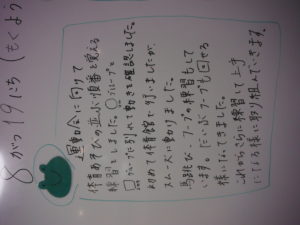 8がつ19にち(もくよう
運動会に向けて
体育あそびの並ぶ順番を覚える
練習をしました。○グループと
□グループに別れて動きを確認しました。
初めて体育館で行いましたが、
スムーズに動けました。
馬跳び、フープの練習もして
います。だいぶフープも回せる
様になってきました。
これからさらに練習して上手
になる様に取り組んでいきます。